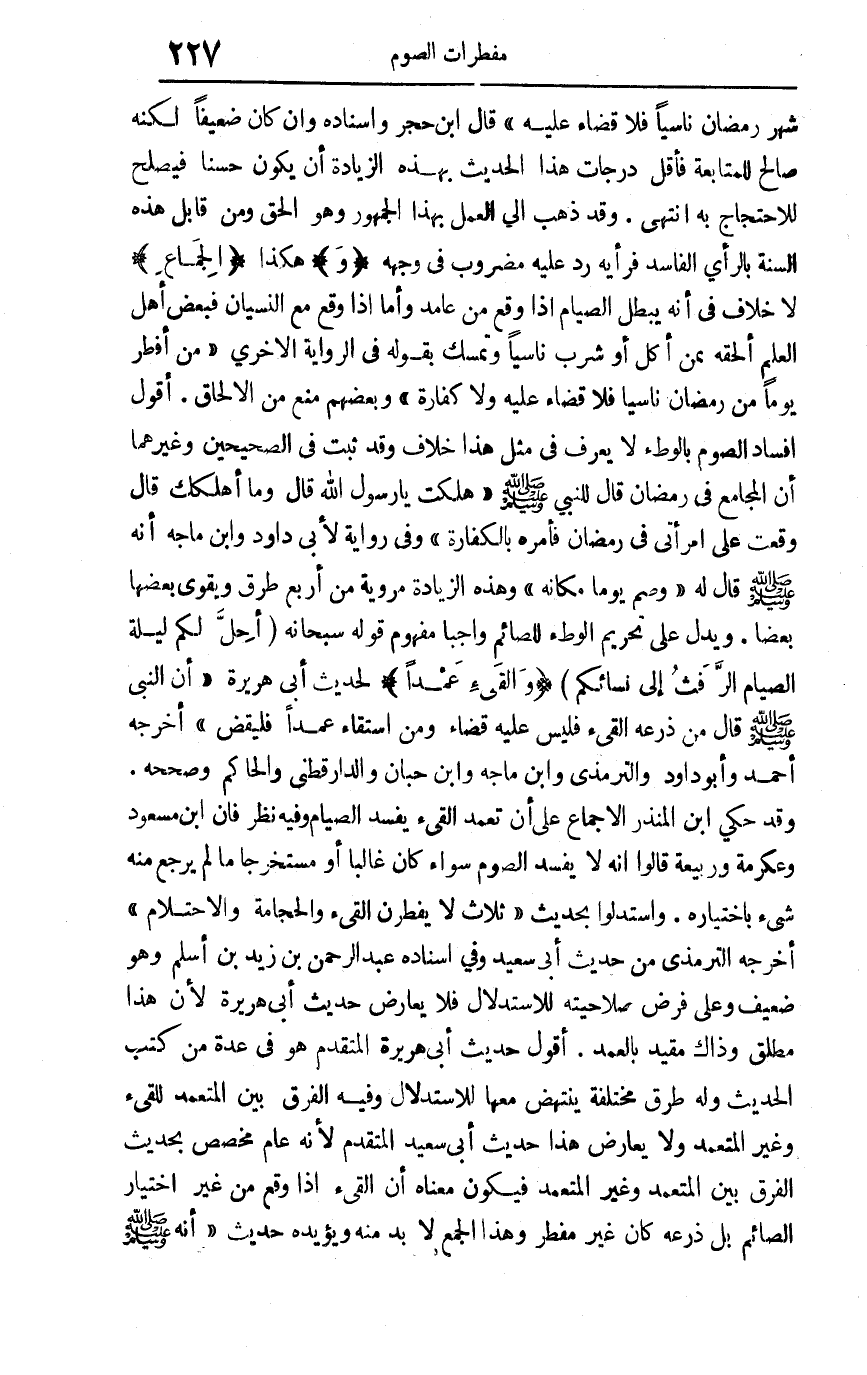 مفطرات الصوم ٢٢٧
شهر رمضان ناسياً فلا قضاء عليه » قال ابن حجر واسناده وان كان ضعيفاً لكنه
صالح للمتابعة فأقل درجات هذا الحديث بهذه الزيادة أن يكون حسنا فيصلح
للاحتجاج به انتهى . وقد ذهب الي العمل بهذا الجمهور وهو الحق ومن قابل هذه
السنة بالرأي الفاسد فرأيه رد عليه مضروب فى وجهه ﴿وَ﴾ هكذا ﴿الجِمَاعِ﴾
لا خلاف فى أنه يبطل الصيام اذا وقع من عامد وأما اذا وقع مع النسيان فبعض أهل
العلم ألحقه بمن أكل أو شرب ناسياً وتمسك بقوله فى الرواية الاخري « من أفطر
يوماً من رمضان ناسيا فلا قضاء عليه ولا كفارة » وبعضهم منع من الالحاق . أقول
افساد الصوم بالوطء لا يعرف فى مثل هذا خلاف وقد ثبت فى الصحيحين وغيرهما
أن المجامع فى رمضان قال للنبي ﷺ « هلكت يارسول الله قال وما أهلكك قال
وقعت على امرأتى فى رمضان فأمره بالكفارة » وفى رواية لأبى داود وابن ماجه أنه
ﷺ قال له « وصم يوما مكانه » وهذه الزيادة مروية من أربع طرق ويقوى بعضها
بعضا . ويدل على تحريم الوطء للصائم واجبا مفهوم قوله سبحانه ( أُحِلَّ لكم ليلة
الصيام الرَّفَثُ إلى نسائكم ) ﴿وَالقَىءِ عَمْداً﴾ لحديث أبى هريرة « أن النبى
ﷺ قال من ذرعه القىء فليس عليه قضاء ومن استقاء عمداً فليقض » أخرجه
أحمد وأبوداود والترمذى وابن ماجه وابن حبان والدارقطنى والحاكم وصححه .
وقد حكي ابن المنذر الاجماع على أن تعمد القىء يفسد الصيام وفيه نظر فان ابن مسعود
وعكرمة وربيعة قالوا انه لا يفسد الصوم سواء كان غالبا أو مستخرجا ما لم يرجع منه
شىء باختياره . واستدلوا بحديث « ثلاث لا يفطرن القىء والحجامة والاحتلام »
أخرجه الترمذى من حديث أبى سعيد وفي اسناده عبدالرحمن بن زيد بن أسلم وهو
ضعيف وعلى فرض صلاحيته للاستدلال فلا يعارض حديث أبى هريرة لأن هذا
مطلق وذاك مقيد بالعمد . أقول حديث أبى هريرة المتقدم هو فى عدة من كتب
الحديث وله طرق مختلفة ينتهض معها للاستدلال وفيه الفرق بين المتعمد للقىء
وغير المتعمد ولا يعارض هذا حديث أبى سعيد المتقدم لأنه عام مخصص بحديث
الفرق بين المتعمد وغير المتعمد فيكون معناه أن القىء اذا وقع من غير اختيار
الصائم بل ذرعه كان غير مفطر وهذا الجمع لا بد منه ويؤيده حديث « أنه ﷺ